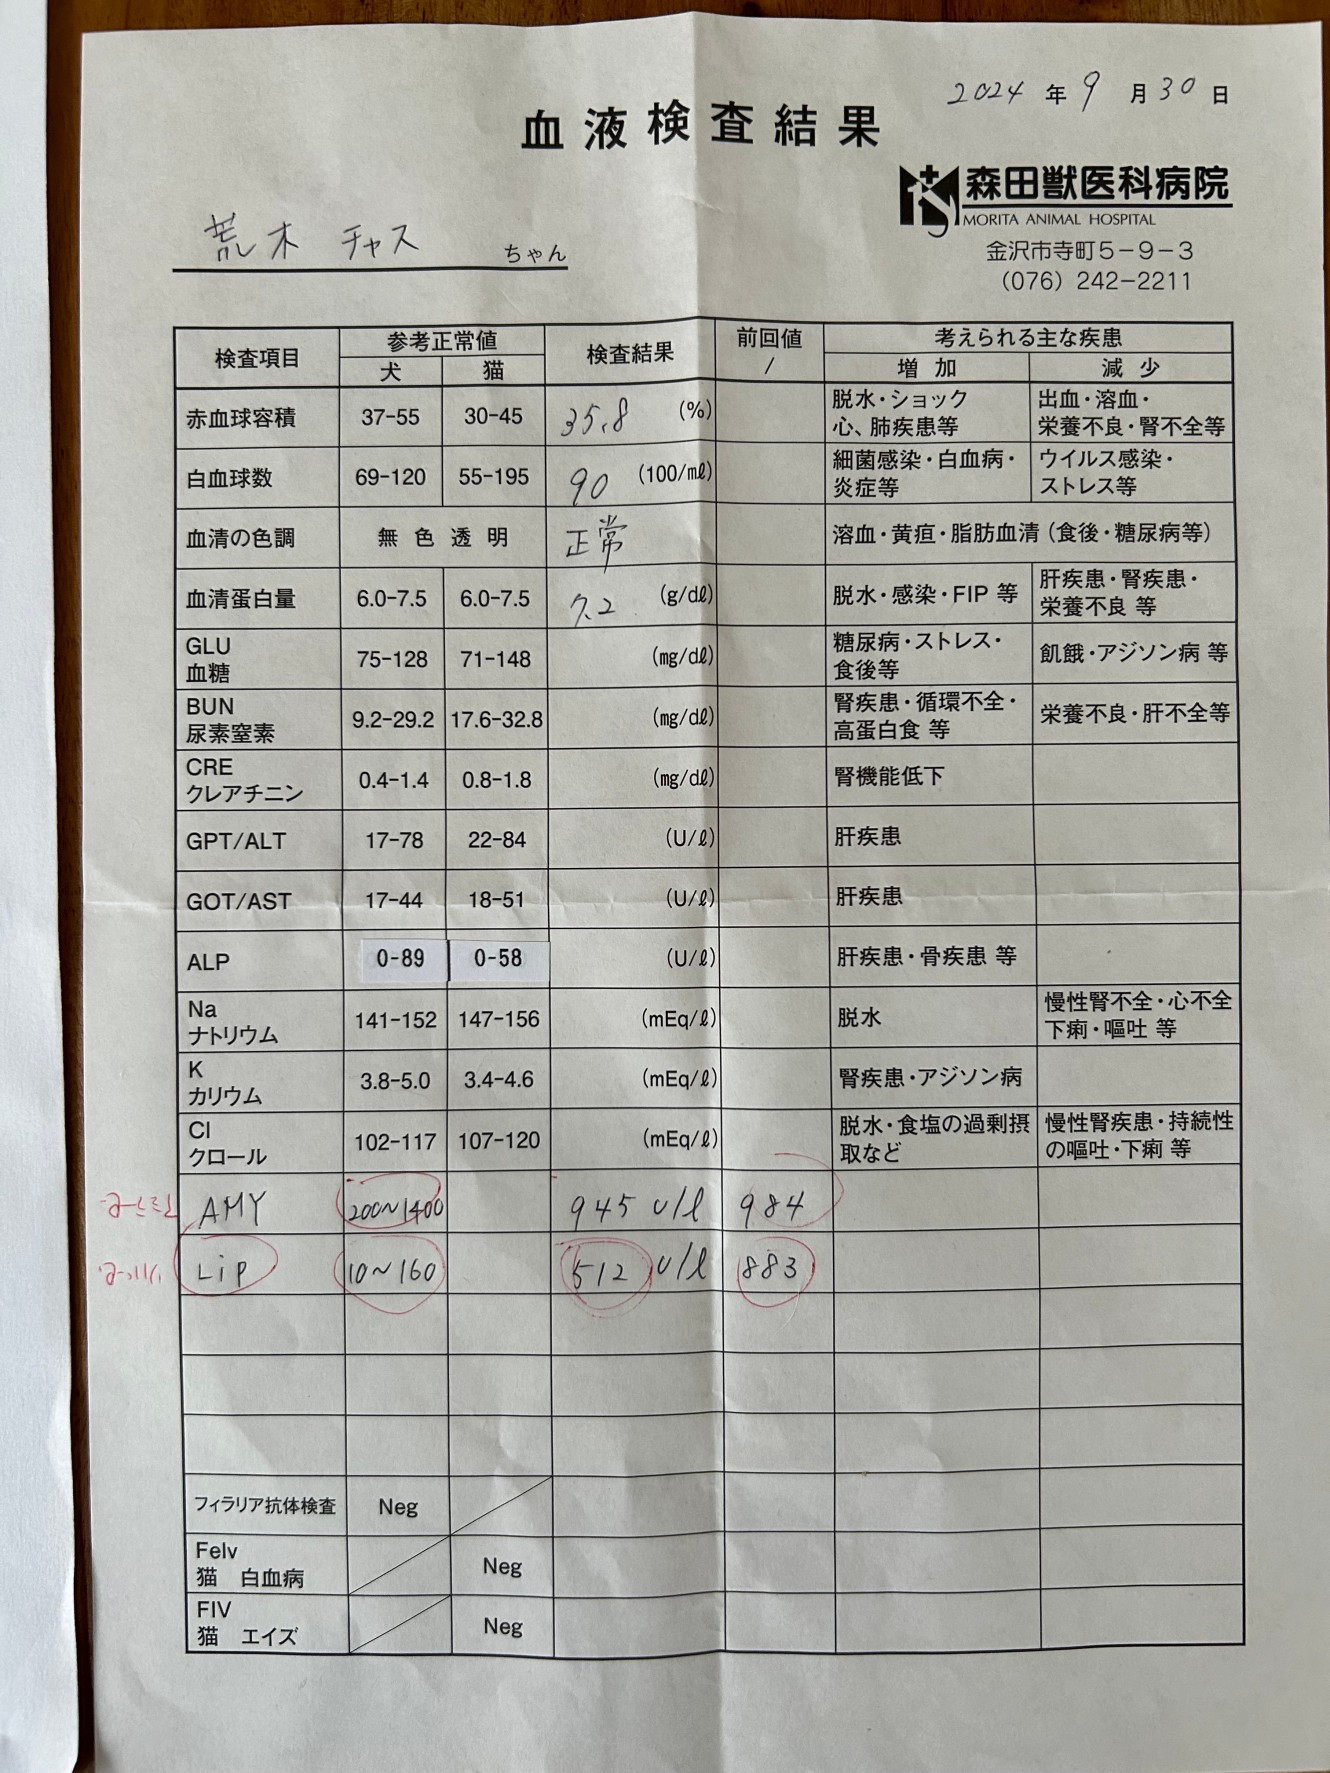 2024 年 9 月 30 日
血液検査結果
森田獣医科病院
MORITA ANIMAL HOSPITAL
金沢市寺町5-9-3
(076) 242-2211
荒木 チャス ちゃん
検査項目 参考正常値 検査結果 前回値 / 考えられる主な疾患
犬 猫 増加 減少
赤血球容積 37-55 30-45 35.8 (%) 脱水・ショック 心、肺疾患等 出血・溶血・栄養不良・腎不全等
白血球数 69-120 55-195 90 (100/mℓ) 細菌感染・白血病・炎症等 ウイルス感染・ストレス等
血清の色調 無色透明 正常 溶血・黄疸・脂肪血清(食後・糖尿病等)
血清蛋白量 6.0-7.5 6.0-7.5 7.2 (g/dℓ) 脱水・感染・FIP 等 肝疾患・腎疾患・栄養不良 等
GLU 血糖 75-128 71-148 (mg/dℓ) 糖尿病・ストレス・食後等 飢餓・アジソン病 等
BUN 尿素窒素 9.2-29.2 17.6-32.8 (mg/dℓ) 腎疾患・循環不全・高蛋白食 等 栄養不良・肝不全等
CRE クレアチニン 0.4-1.4 0.8-1.8 (mg/dℓ) 腎機能低下
GPT/ALT 17-78 22-84 (U/ℓ) 肝疾患
GOT/AST 17-44 18-51 (U/ℓ) 肝疾患
ALP 0-89 0-58 (U/ℓ) 肝疾患・骨疾患 等
Na ナトリウム 141-152 147-156 (mEq/ℓ) 脱水 慢性腎不全・心不全 下痢・嘔吐 等
K カリウム 3.8-5.0 3.4-4.6 (mEq/ℓ) 腎疾患・アジソン病
Cl クロール 102-117 107-120 (mEq/ℓ) 脱水・食塩の過剰摂取など 慢性腎疾患・持続性の嘔吐・下痢 等
AMY 200~1400 945 U/l 984
Lip 10~160 512 U/l 883
フィラリア抗体検査 Neg
Felv 猫 白血病 Neg
FIV 猫 エイズ Neg